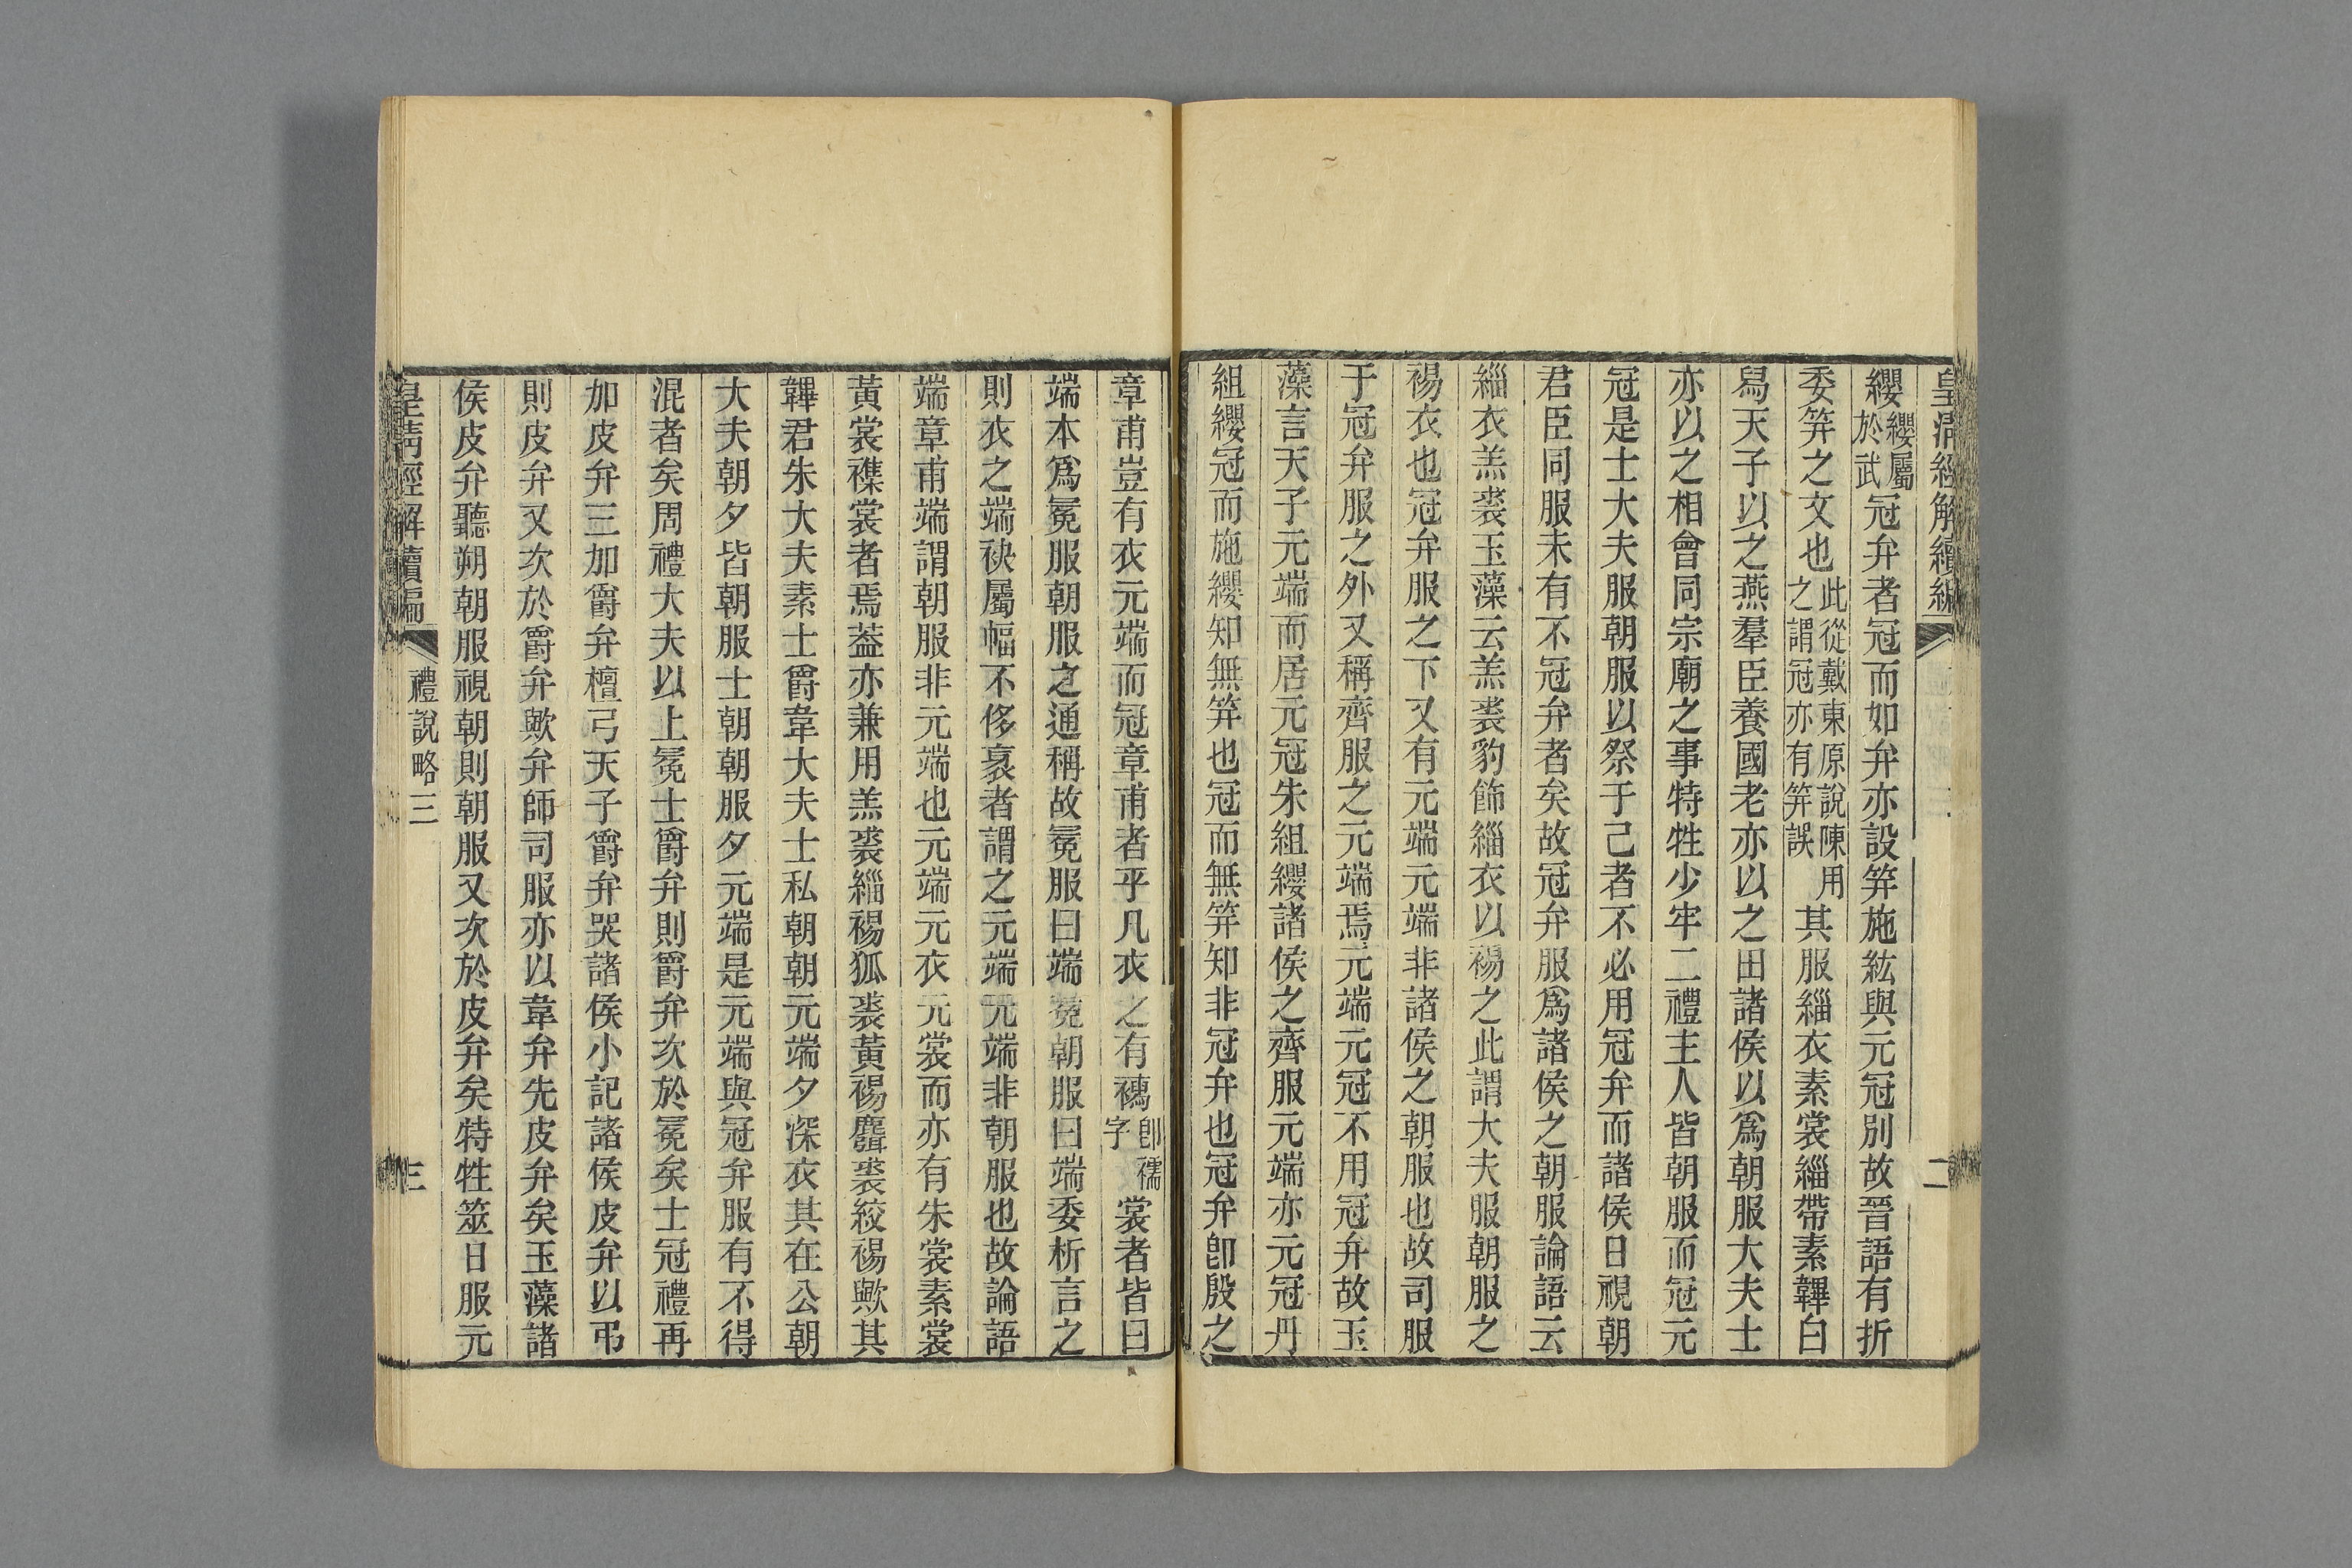 皇清經解續編
二
纓纓屬於武冠弁者冠而如弁亦設笄施紘與元冠別故晉語有折
委笄之文也此從戴東原說陳用之謂冠亦有笄誤其服緇衣素裳緇帶素韠白
舄天子以之燕羣臣養國老亦以之田諸侯以爲朝服大夫士
亦以之相會同宗廟之事特牲少牢二禮主人皆朝服而冠元
冠是士大夫服朝服以祭于己者不必用冠弁而諸侯日視朝
君臣同服未有不冠弁者矣故冠弁服爲諸侯之朝服論語云
緇衣羔裘玉藻云羔裘豹飾緇衣以裼之此謂大夫服朝服之
裼衣也冠弁服之下又有元端元端非諸侯之朝服也故司服
于冠弁服之外又稱齊服之元端焉元端元冠不用冠弁故玉
藻言天子元端而居元冠朱組纓諸侯之齊服元端亦元冠丹
組纓冠而施纓知無笄也冠而無笄知非冠弁也冠弁卽殷之
章甫豈有衣元端而冠章甫者乎凡衣之有襺卽襦字裳者皆曰
端本爲冕服朝服之通稱故冕服曰端冕朝服曰端委析言之
則衣之端袂屬幅不侈袤者謂之元端元端非朝服也故論語
端章甫端謂朝服非元端也元端元衣元裳而亦有朱裳素裳
黃裳襍裳者焉葢亦兼用羔裘緇裼狐裘黃裼麛裘絞裼歟其
韠君朱大夫素士爵韋大夫士私朝朝元端夕深衣其在公朝
大夫朝夕皆朝服士朝朝服夕元端是元端與冠弁服有不得
混者矣周禮大夫以上冕士爵弁則爵弁次於冕矣士冠禮再
加皮弁三加爵弁檀弓天子爵弁哭諸侯小記諸侯皮弁以弔
則皮弁又次於爵弁歟弁師司服亦以韋弁先皮弁矣玉藻諸
侯皮弁聽朔朝服視朝則朝服又次於皮弁矣特牲筮日服元
皇清經解續編
禮說略三
三